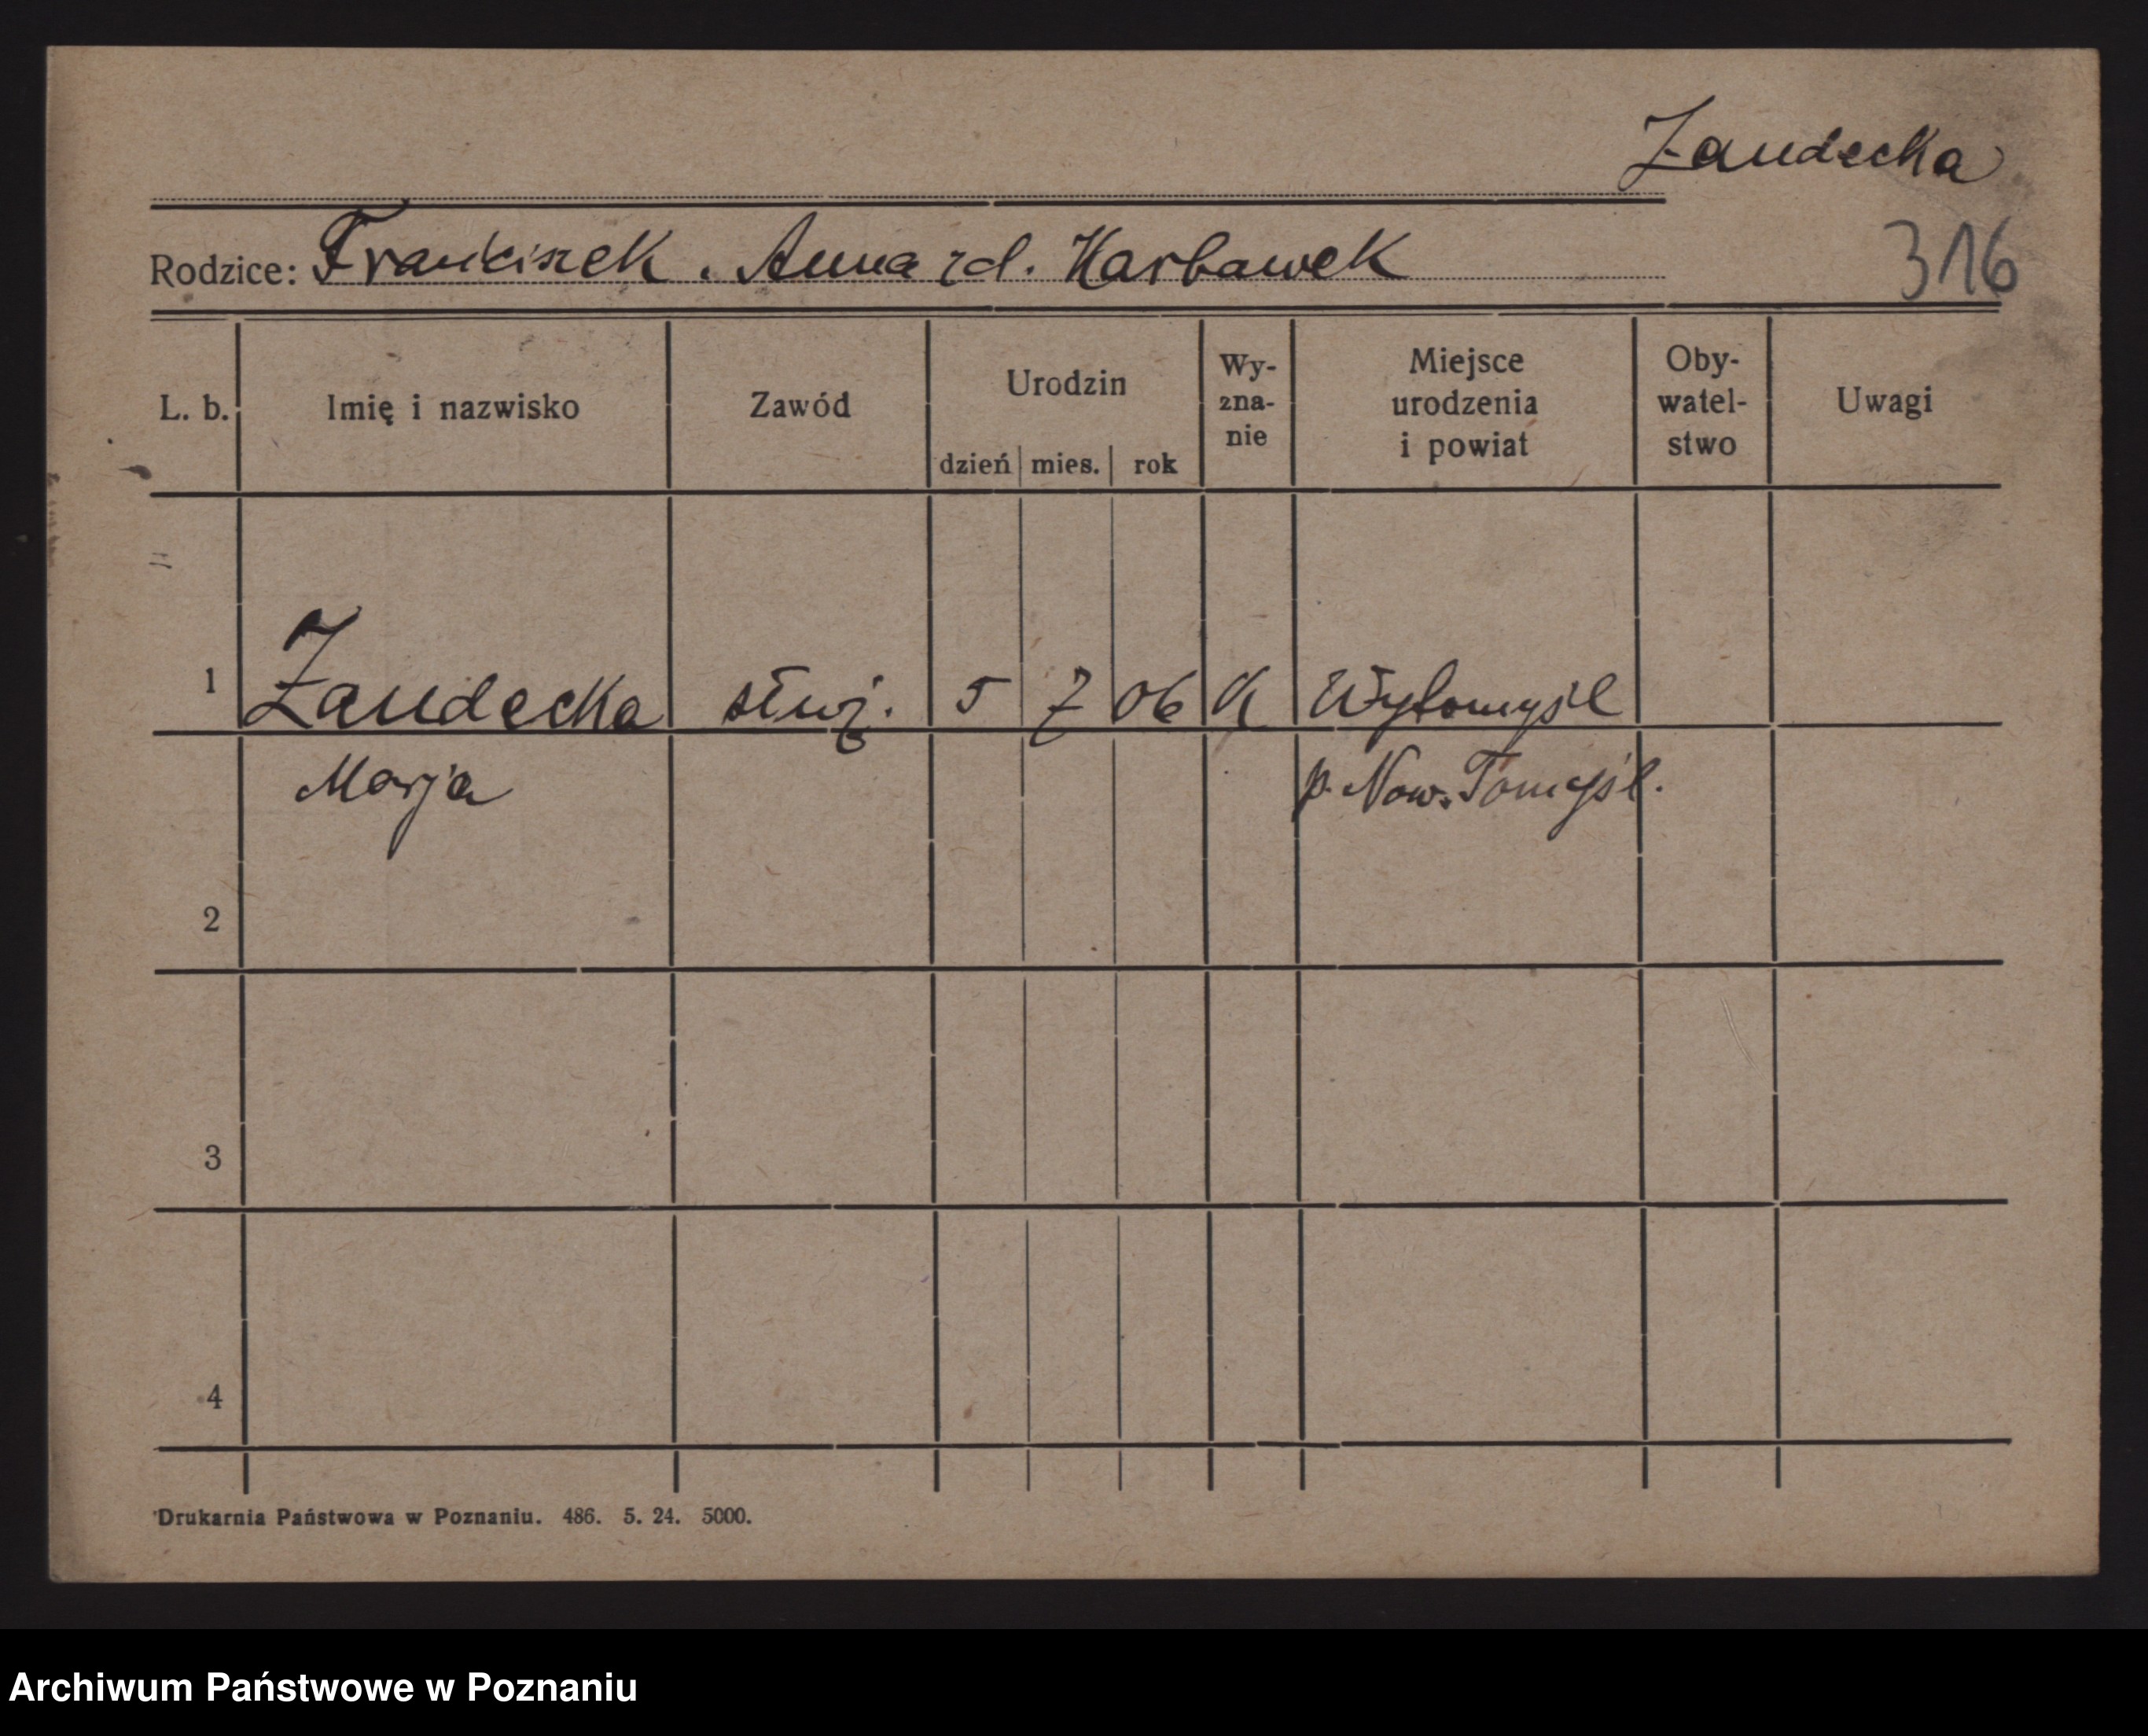 Żandecka
Rodzice: Franciszek . Anna zd. Karbawek
316
L. b. Imię i nazwisko Zawód Urodzin dzień mies. rok Wy-zna-nie Miejsce urodzenia i powiat Oby-watel-stwo Uwagi
1 Żandecka służ. 5 7 06 K Wytomyśl
Marja p. Now. Tomyśl.
2
3
4
Drukarnia Państwowa w Poznaniu. 486. 5. 24. 5000.
Archiwum Państwowe w Poznaniu